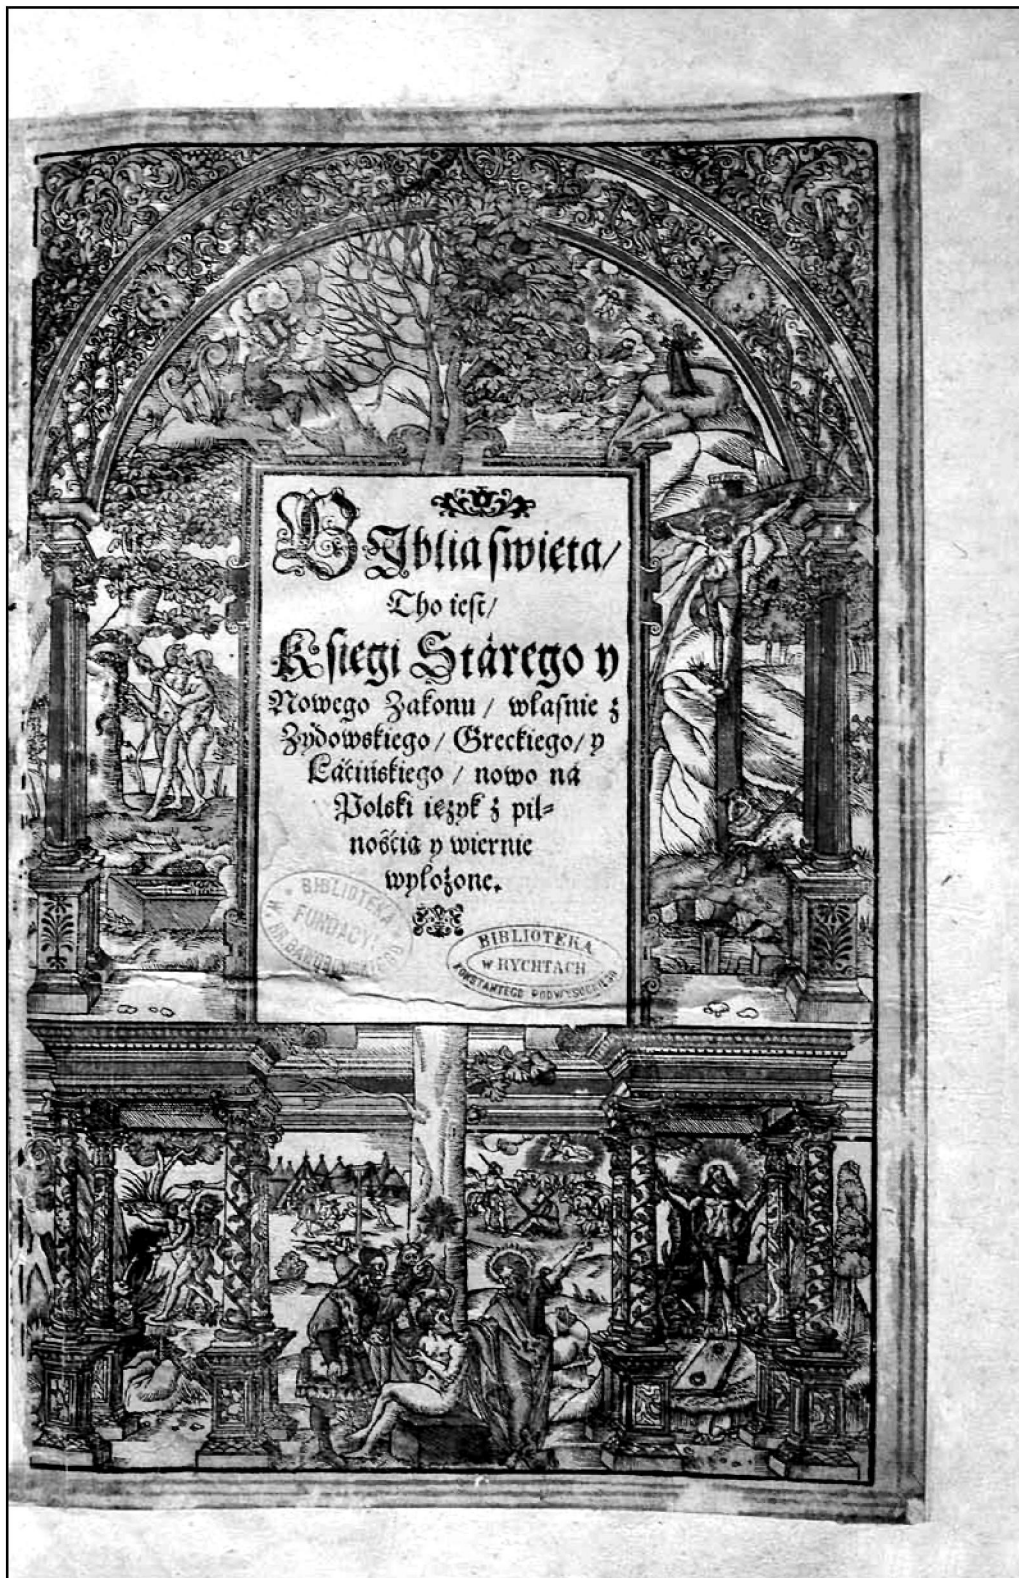 BIblia swięta/
Tho iest/
Księgi Stárego y
Nowego Zakonu / własnie z
Zydowskiego / Greckiego / y
Łácińskiego / nowo ná
Polski ięzyk z pil=
nością y wiernie
wyłożone.
BIBLIOTEKA
FUNDACYI
W.
BIBLIOTEKA
w RYCHTACH
KONSTANTEGO PODWYSOCKIEGO